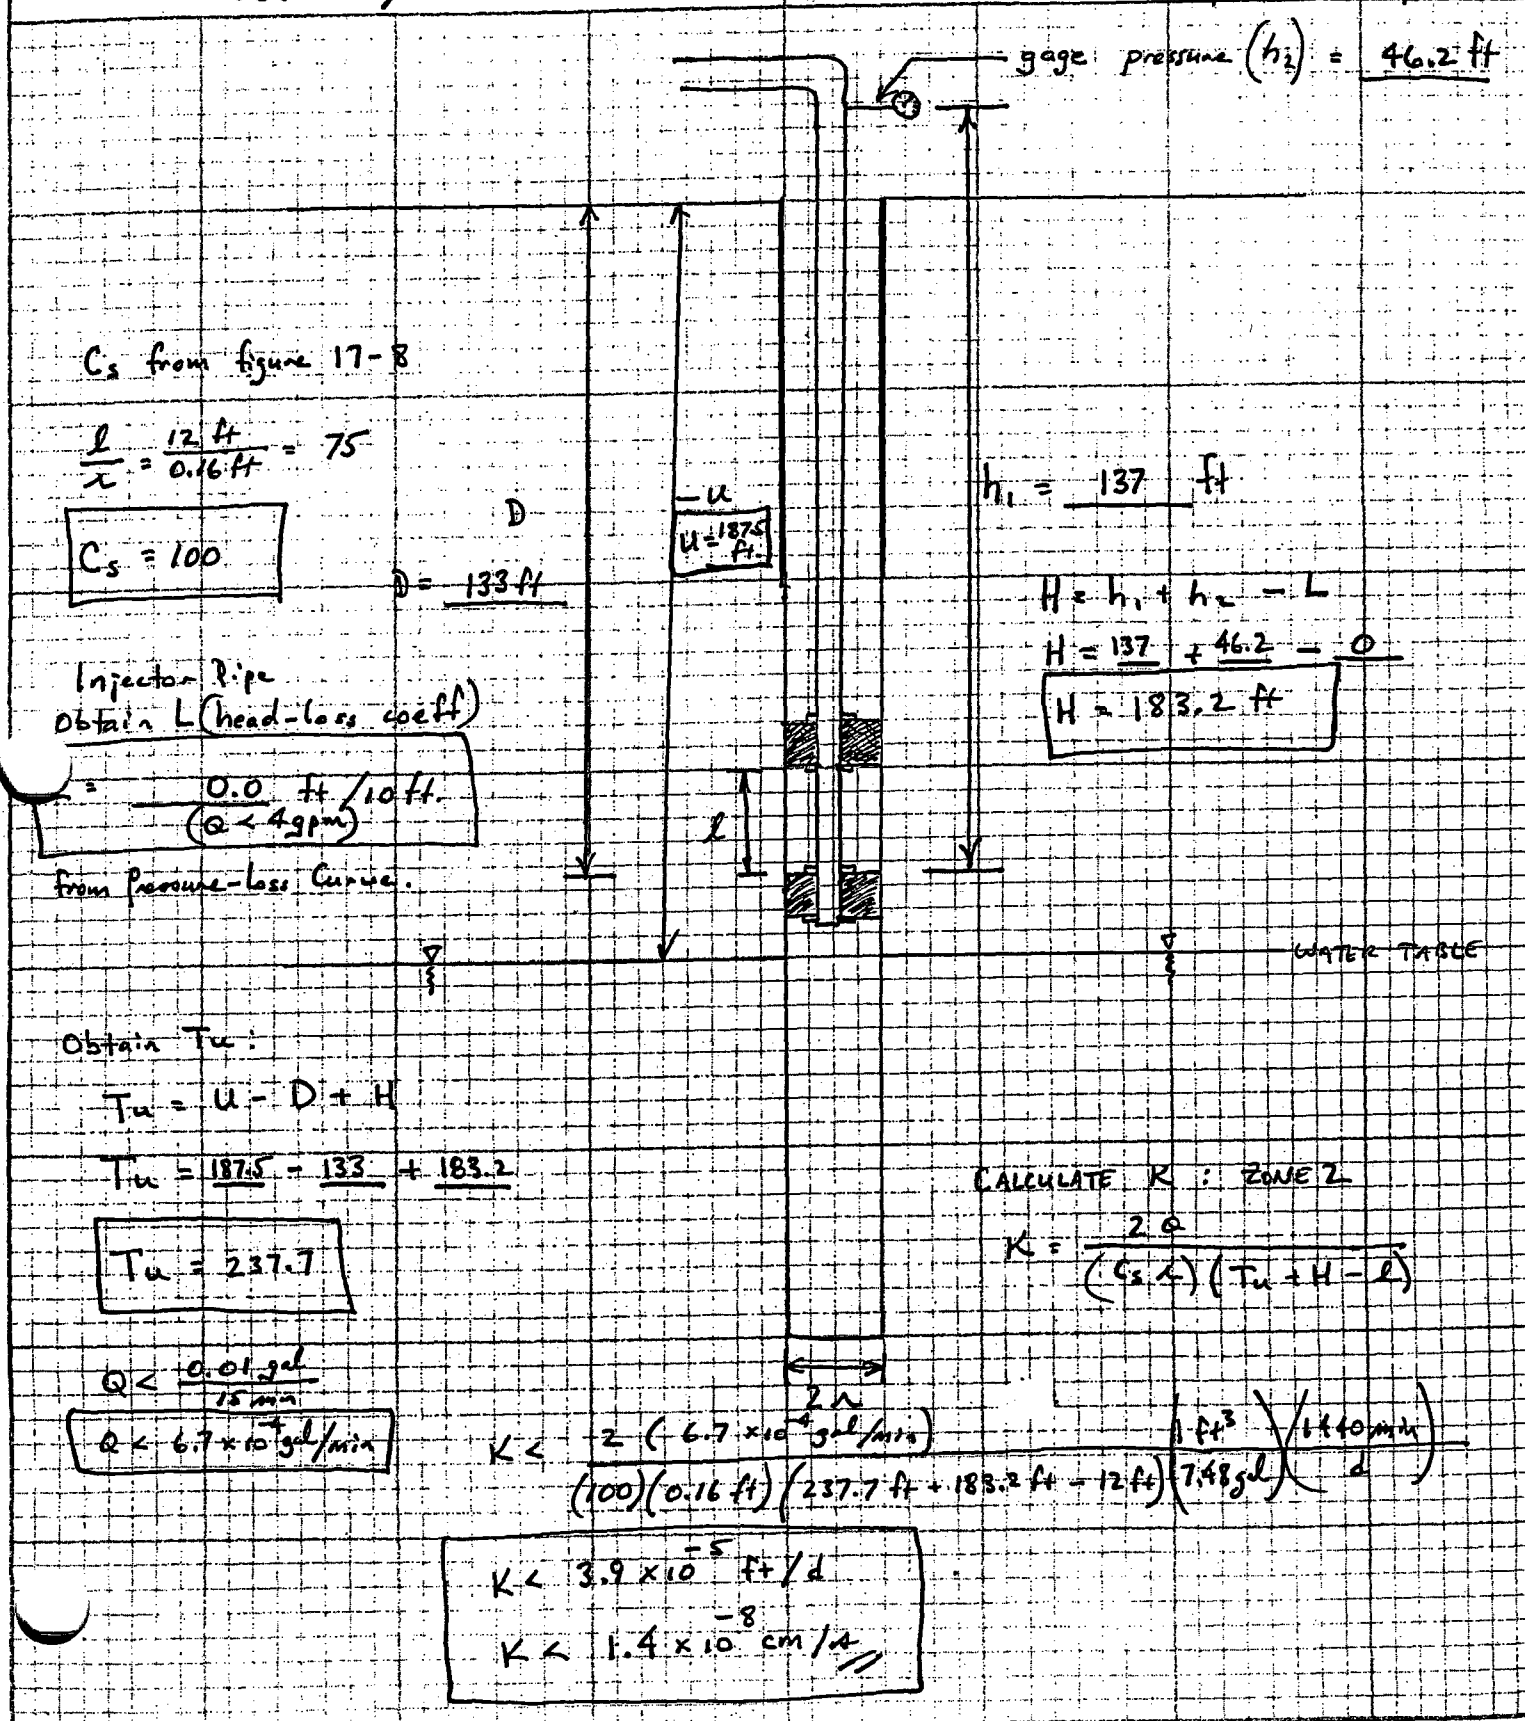 gage pressure (h₂) = 46.2 ft
Cs from figure 17-8
l/r = 12 ft/0.16 ft = 75
Cs = 100
D
D = 133 ft
u
U = 187.5 ft.
h₁ = 137 ft
H = h₁ + h₂ - L
H = 137 + 46.2 - 0
H = 183.2 ft
Injector Pipe
Obtain L (head-loss coeff)
= 0.0 ft/10 ft.
(Q < 4 gpm)
from Pressure-Loss Curve.
l
WATER TABLE
Obtain Tu:
Tu = U - D + H
Tu = 187.5 - 133 + 183.2
Tu = 237.7
CALCULATE K : ZONE 2
K = 2Q / (Cs r)(Tu + H - l)
Q < 0.01 gal / 15 min
Q < 6.7 x 10⁻⁴ gal/min
2r
K < 2 (6.7 x 10⁻⁴ gal/min) / (100)(0.16 ft)(237.7 ft + 183.2 ft - 12 ft) (1 ft³/7.48 gal)(1440 min/d)
K < 3.9 x 10⁻⁵ ft/d
K < 1.4 x 10⁻⁸ cm/s